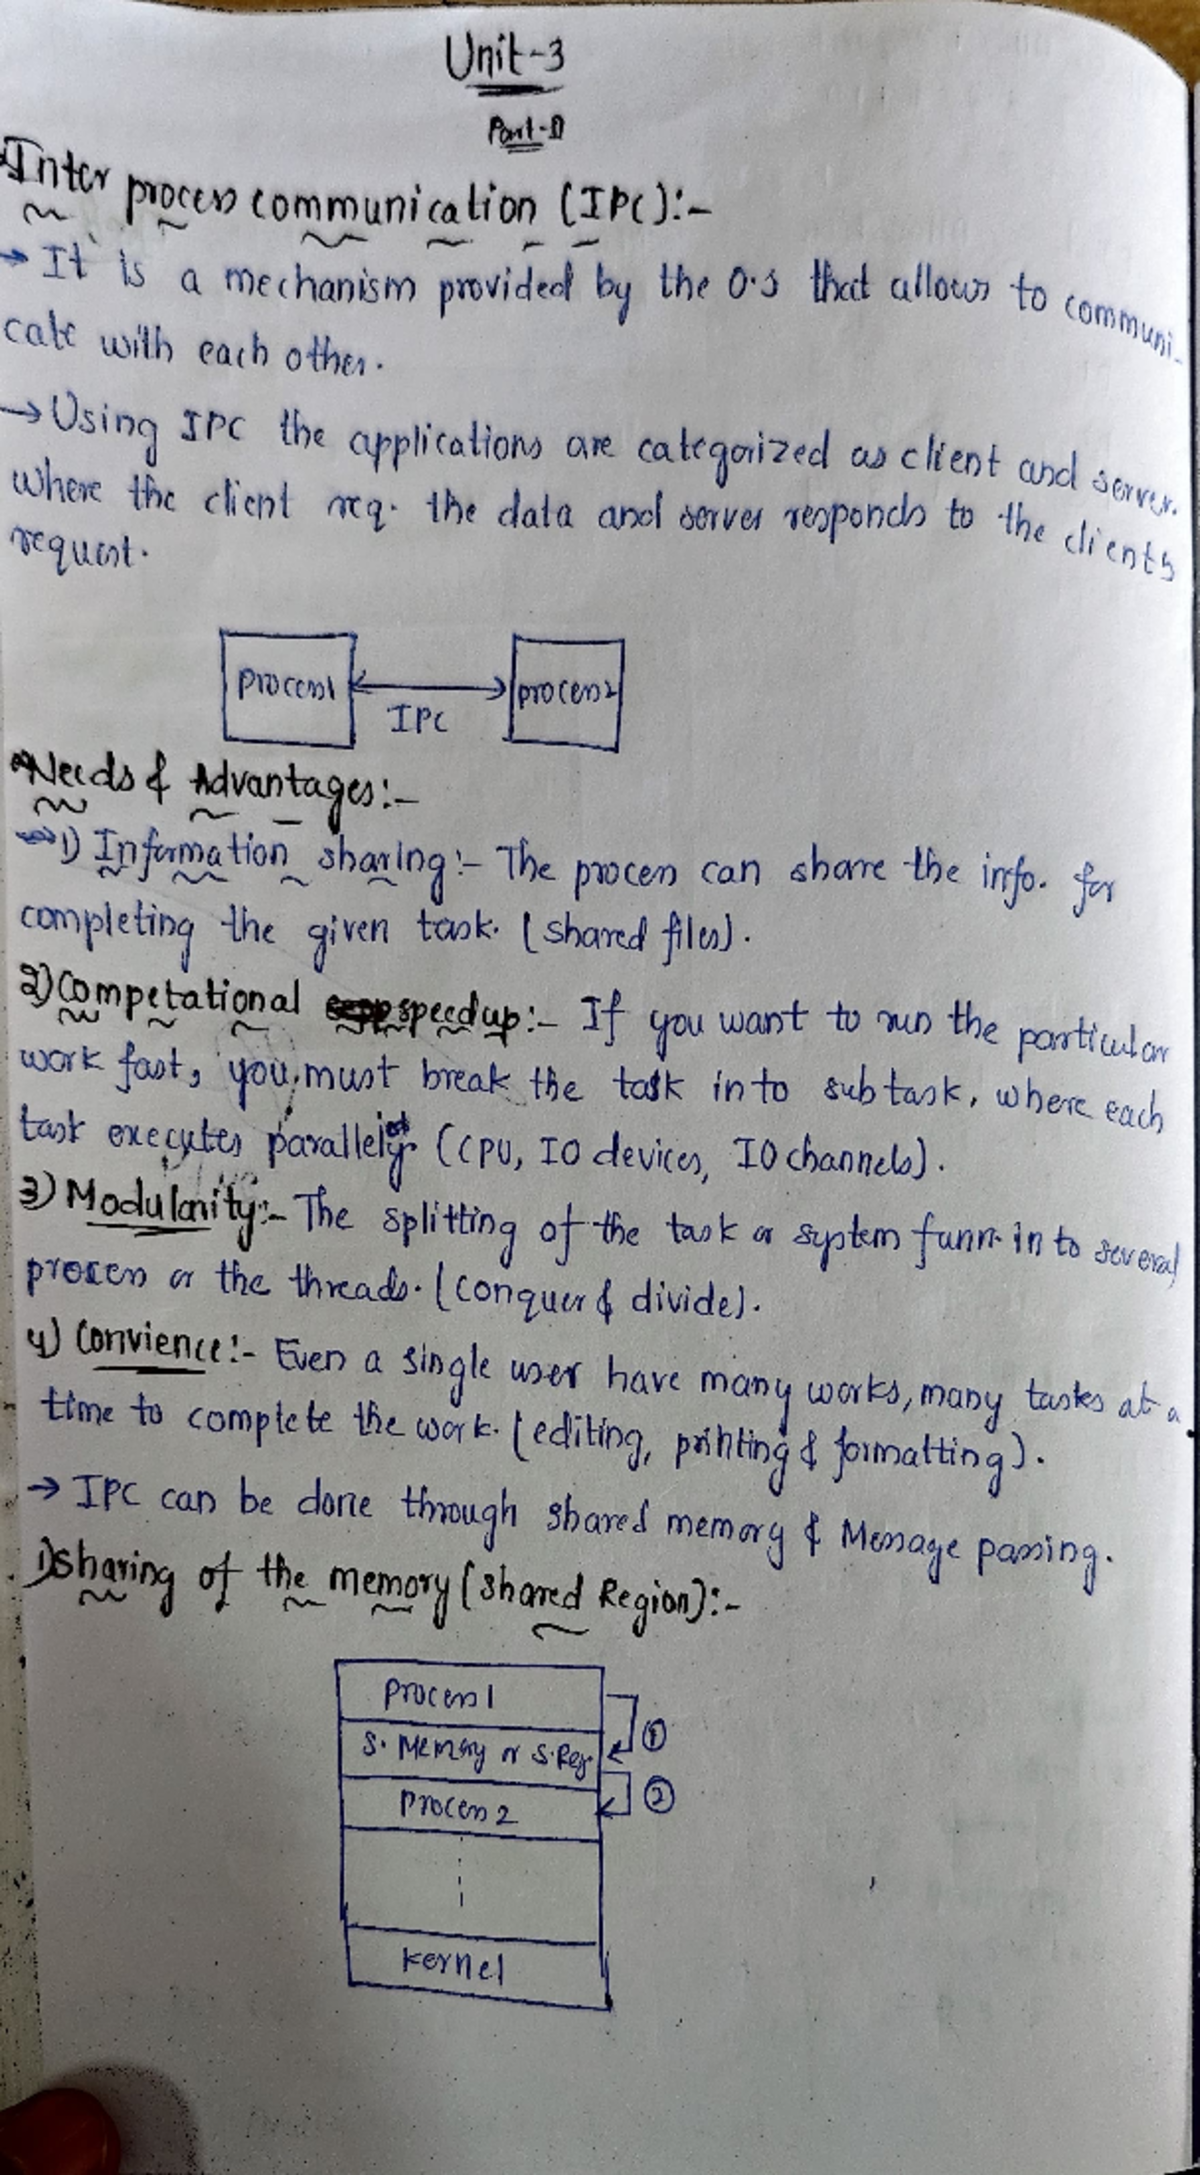 Unit-3
Part-A
Inter process communication (IPC):-
→ It is a mechanism provided by the O.S that allows to communi-
cate with each other.
→ Using IPC the applications are categorized as client and server.
where the client req. the data and server responds to the clients
request.
process1
process2
IPC
Needs & Advantages:-
1) Information sharing:- The process can share the info. for
completing the given task. (shared files).
2) Competational speedup:- If you want to run the particular
work fast, you must break the task in to subtask, where each
task executes parallely (CPU, IO devices, IO channels).
3) Modularity:- The splitting of the task or system funn. in to several
process or the threads. (conquer & divide).
4) Convience:- Even a single user have many works, many tasks at a
time to complete the work. (editing, printing & formatting).
→ IPC can be done through shared memory & Message passing.
1) sharing of the memory (shared Region):-
process1
S. Memory or S.Reg.
①
process2
②
kernel